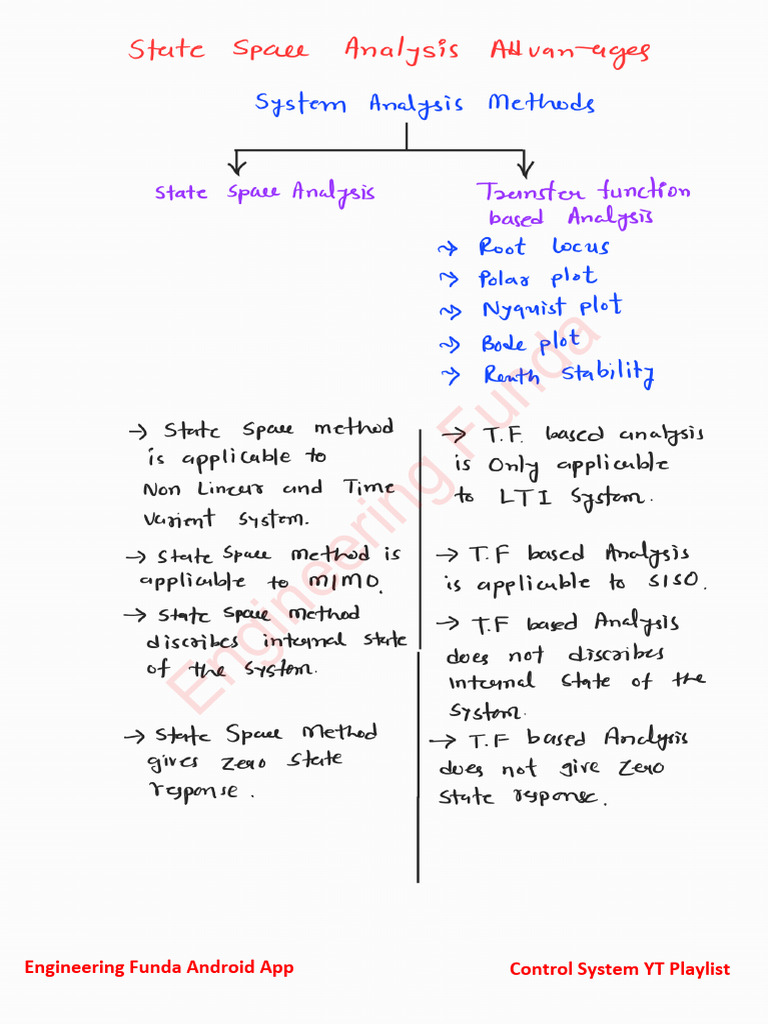 State Space Analysis Advan-ages
System Analysis Methods
State Space Analysis
Transfer function
based Analysis
Root locus
Polar plot
Nyquist plot
Bode plot
Routh Stability
→ State Space method
is applicable to
Non Linear and Time
varient system.
→ State Space Method is
applicable to MIMO.
→ State Space Method
discribes internal state
of the system.
→ State Space Method
gives zero state
response.
→ T.F. based analysis
is Only applicable
to LTI System.
→ T.F based Analysis
is applicable to SISO.
→ T.F based Analysis
does not discribes
internal state of the
system.
→ T.F based Analysis
does not give zero
state response.
Engineering Funda
Engineering Funda Android App
Control System YT Playlist